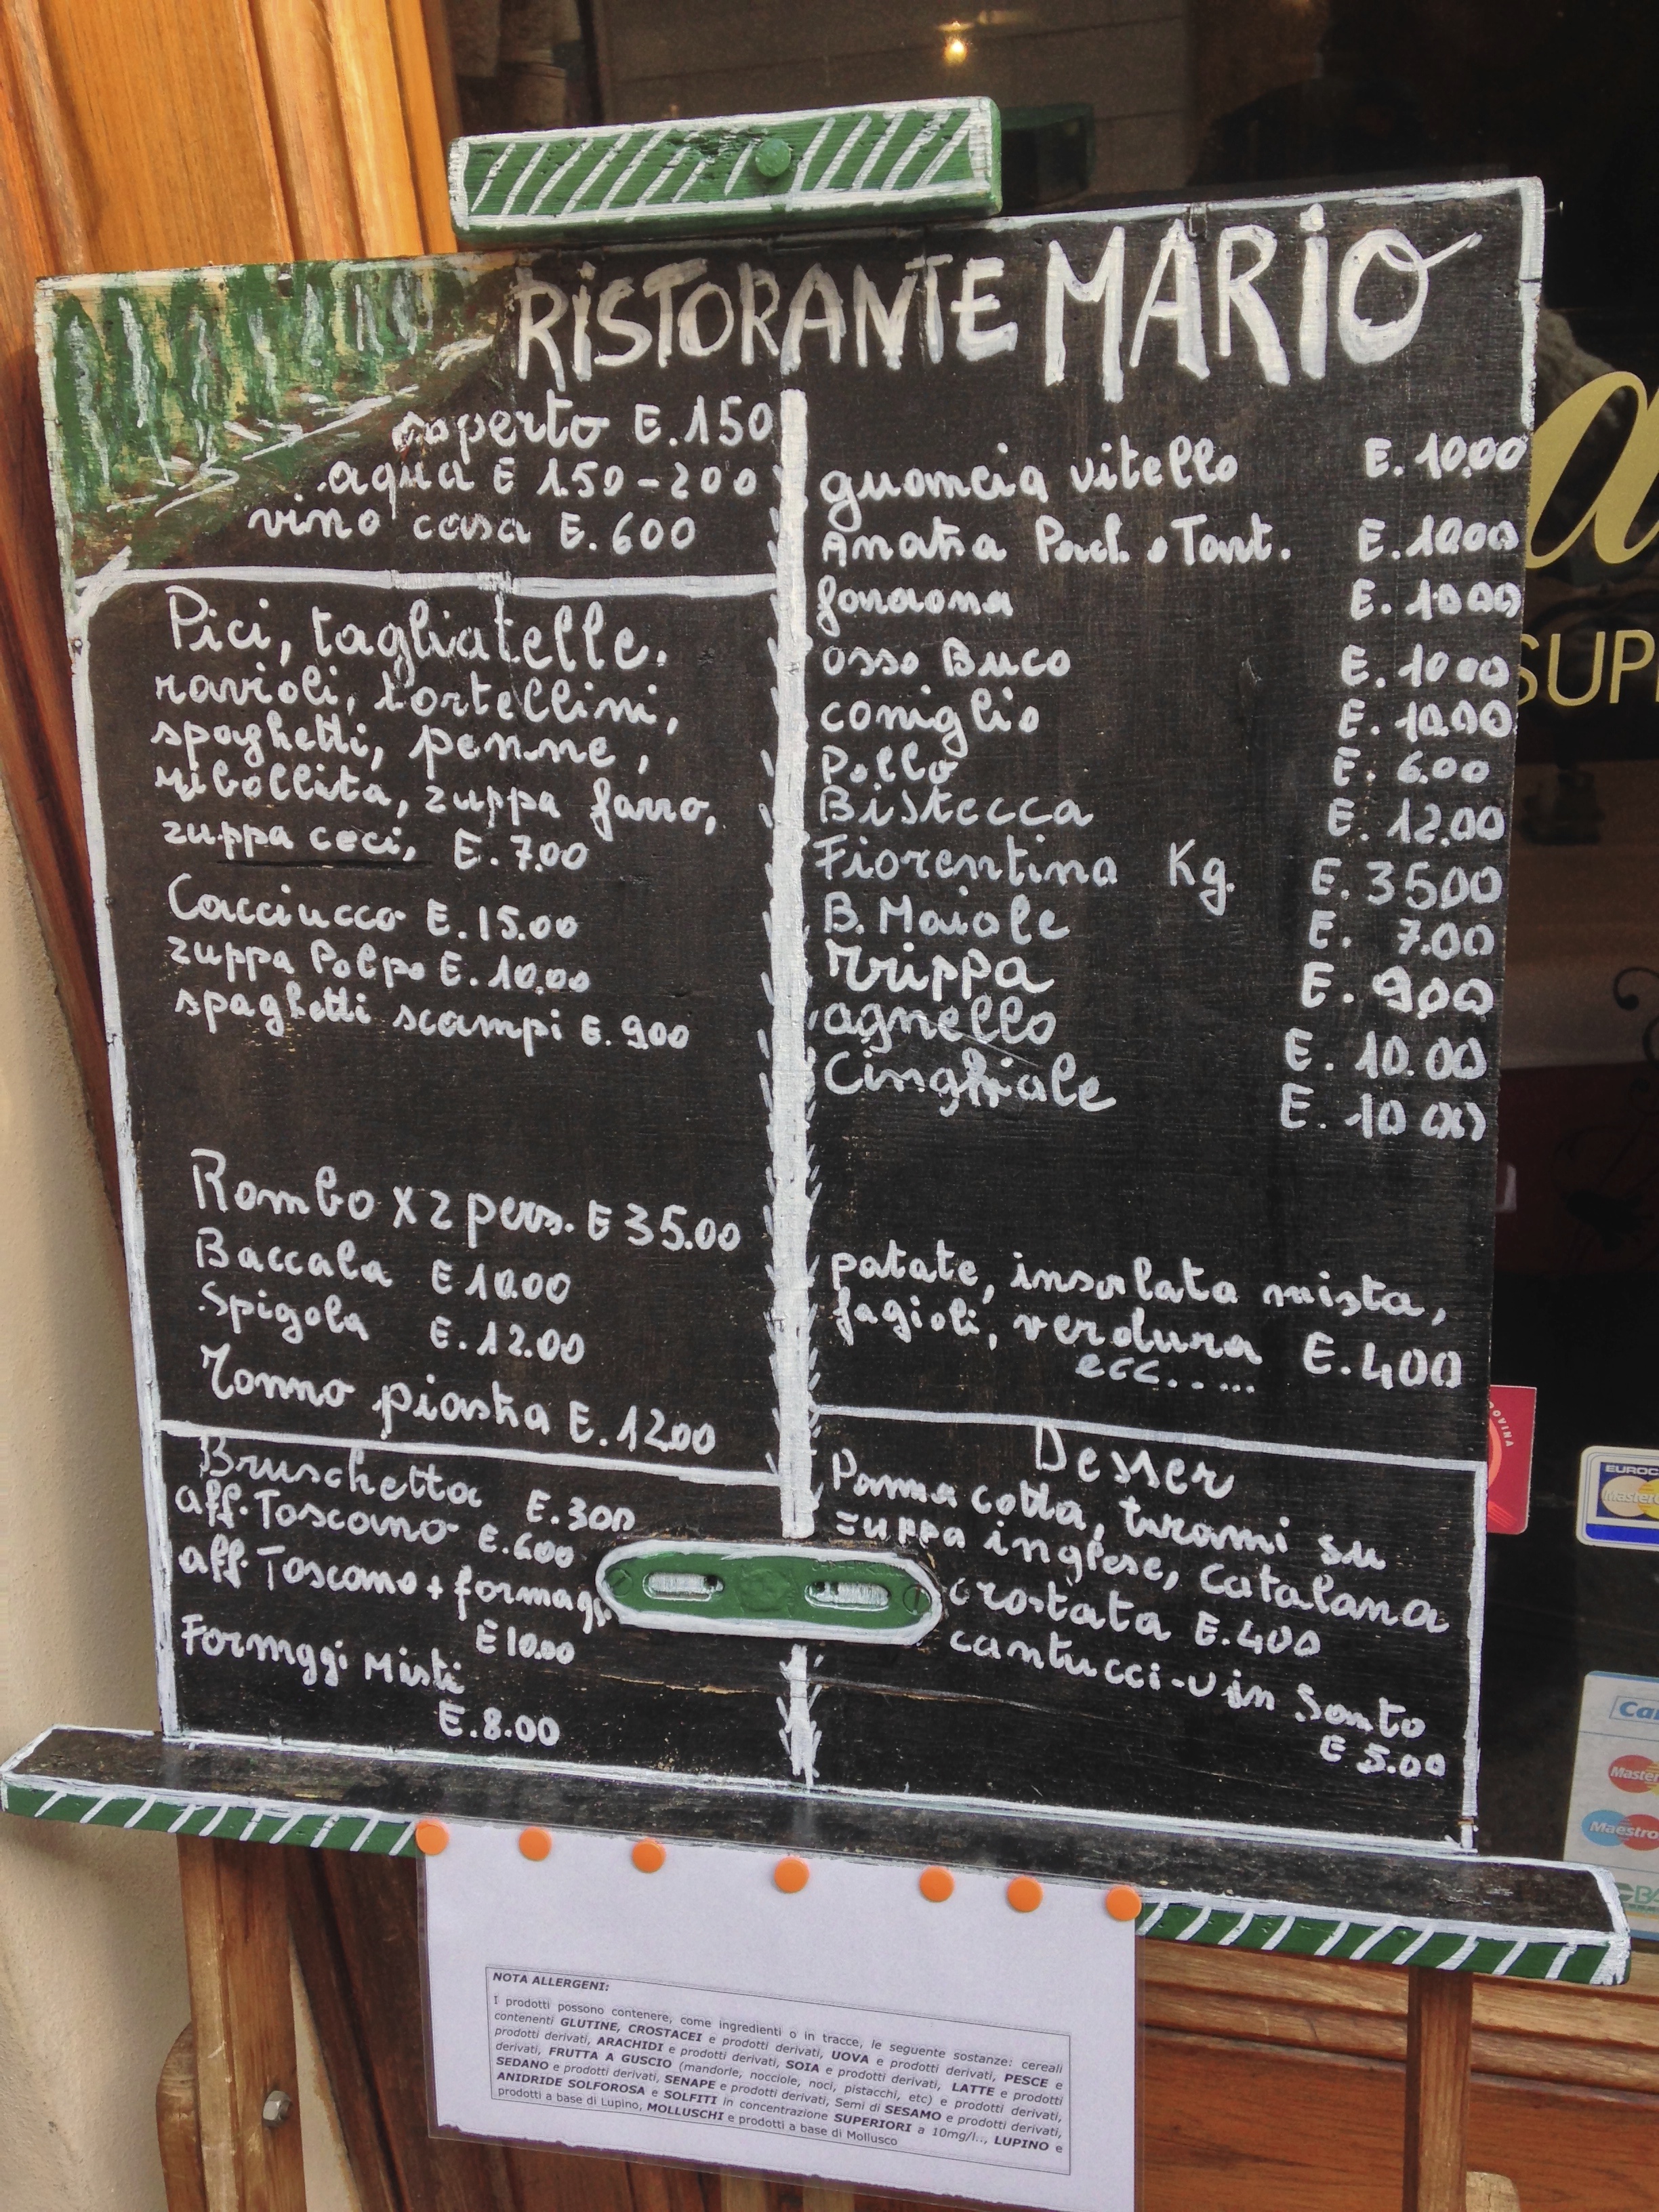 RISTORANTE MARIO
coperto E.150
aqua E 1.50-200
vino casa E.600
Pici, tagliatelle.
ravioli, tortellini,
spaghetti, penne,
ribollita, zuppa farro,
zuppa ceci, E.7.00
Cacciucco E.15.00
zuppa Polpo E.10.00
spaghetti scampi E.900
Rombo X 2 pers. E 35.00
Baccala E 10.00
Spigola E.12.00
Tonno piastra E.1200
Bruschetta E.300
aff.Toscano E.600
aff.Toscano + formagg
E 10.00
Formggi Misti
E.8.00
guancia vitello E.10.00
Anatra Pad. o Tart. E.10.00
faraona E.1000
osso Buco E.1000
coniglio E.10.00
Pollo E.6.00
Bistecca E.12.00
Fiorentina Kg. E.3500
B.Maiole E.7.00
Trippa E.9.00
agnello E.10.00
Cinghiale E.10 00
patate, insalata mista,
fagioli, verdura E.400
ecc.....
Desser
Panna cotta, tirami su
zuppa inglese, Catalana
crostata E.400
cantucci-vin Santo
E 5.00
a
SUP
OVINA
EUROC
Master
Car
Master
Maestro
BA
NOTA ALLERGENI:
I prodotti possono contenere, come ingredienti o in tracce, le seguente sostanze: cereali
contenenti GLUTINE, CROSTACEI e prodotti derivati, UOVA e prodotti derivati, PESCE e
prodotti derivati, ARACHIDI e prodotti derivati, SOIA e prodotti derivati, LATTE e prodotti
derivati, FRUTTA A GUSCIO (mandorle, nocciole, noci, pistacchi, etc) e prodotti derivati,
SEDANO e prodotti derivati, SENAPE e prodotti derivati, Semi di SESAMO e prodotti derivati,
ANIDRIDE SOLFOROSA e SOLFITI in concentrazione SUPERIORI a 10mg/l.., LUPINO e
prodotti a base di Lupino, MOLLUSCHI e prodotti a base di Mollusco